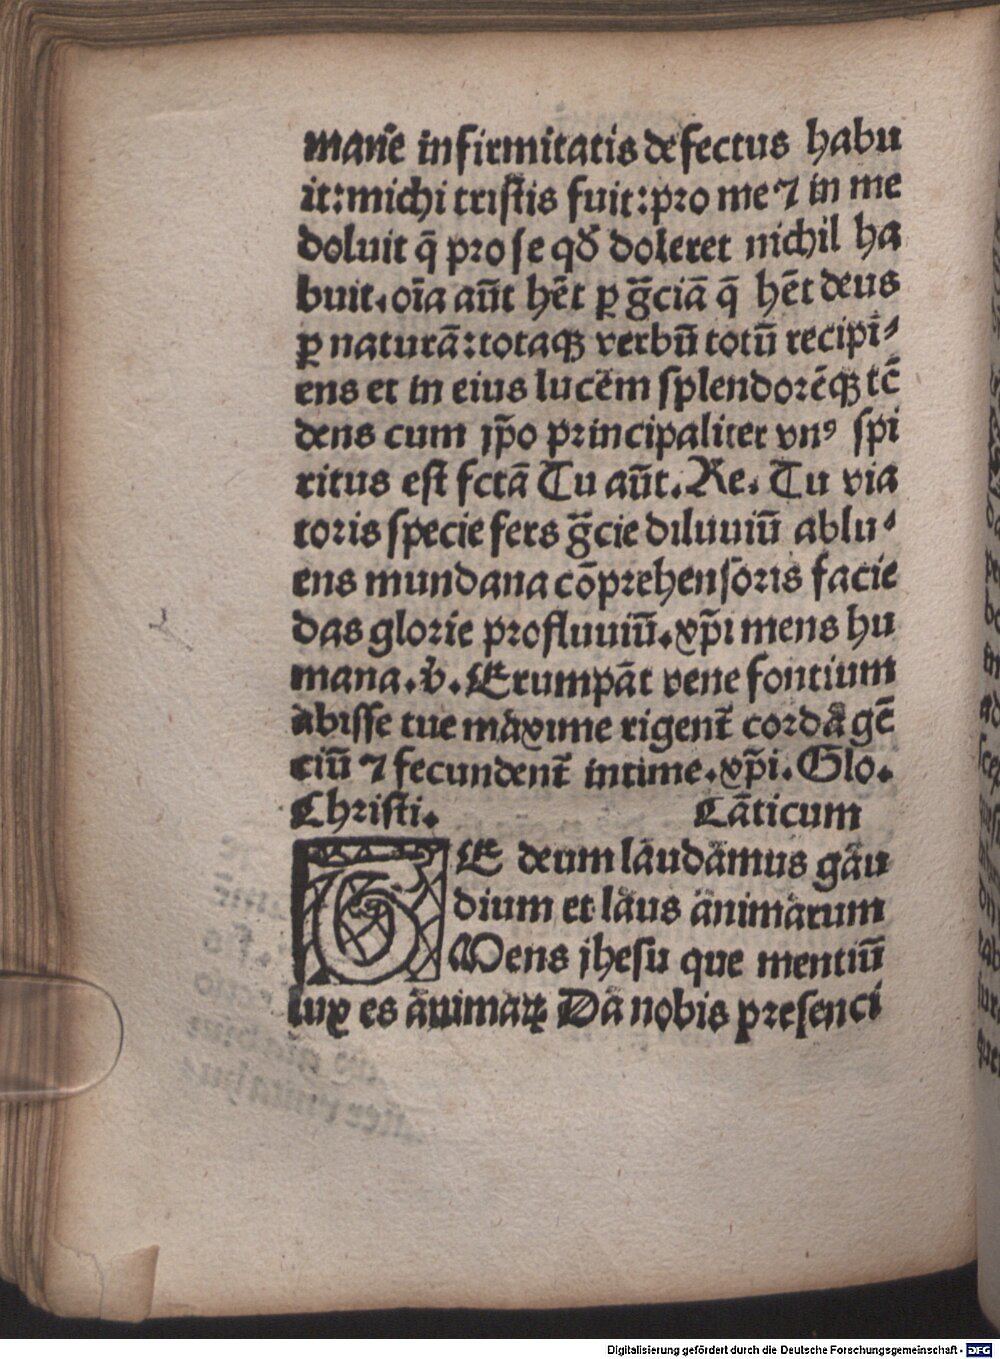 mane̅ infirmitatis defectus habu
it: michi tristis fuit: pro me ⁊ in me
doluit q̄ pro se qđ doleret nichil ha
buit. oi̅a au̅t he̅t ꝑ gr̅ciā q̄ he̅t deus
ꝑ naturā: totaqꝫ verbū totū recipi⸗
ens et in eius lucem splendorēqꝫ tē
dens cum ip̅o principaliter vnꝰ spi
ritus est fctā Tu au̅t. Re. Tu via
toris specie fers gr̅cie diluuiū ablu⸗
ens mundana cōprehensoris facie
das glorie profluuiū. xp̅i mens hu
mana. v̓. Erumpāt vene fontium
abisse tue maxime rigent̄ corda gē
ciū ⁊ fecundent̄ intime. xp̅i. Glo.
Christi. Cāticum
TE deum laudamus gau
dium et laus animarum
Mens jhesu que mentiū
lux es animaꝝ Da nobis presenci
Digitalisierung gefördert durch die Deutsche Forschungsgemeinschaft - DFG